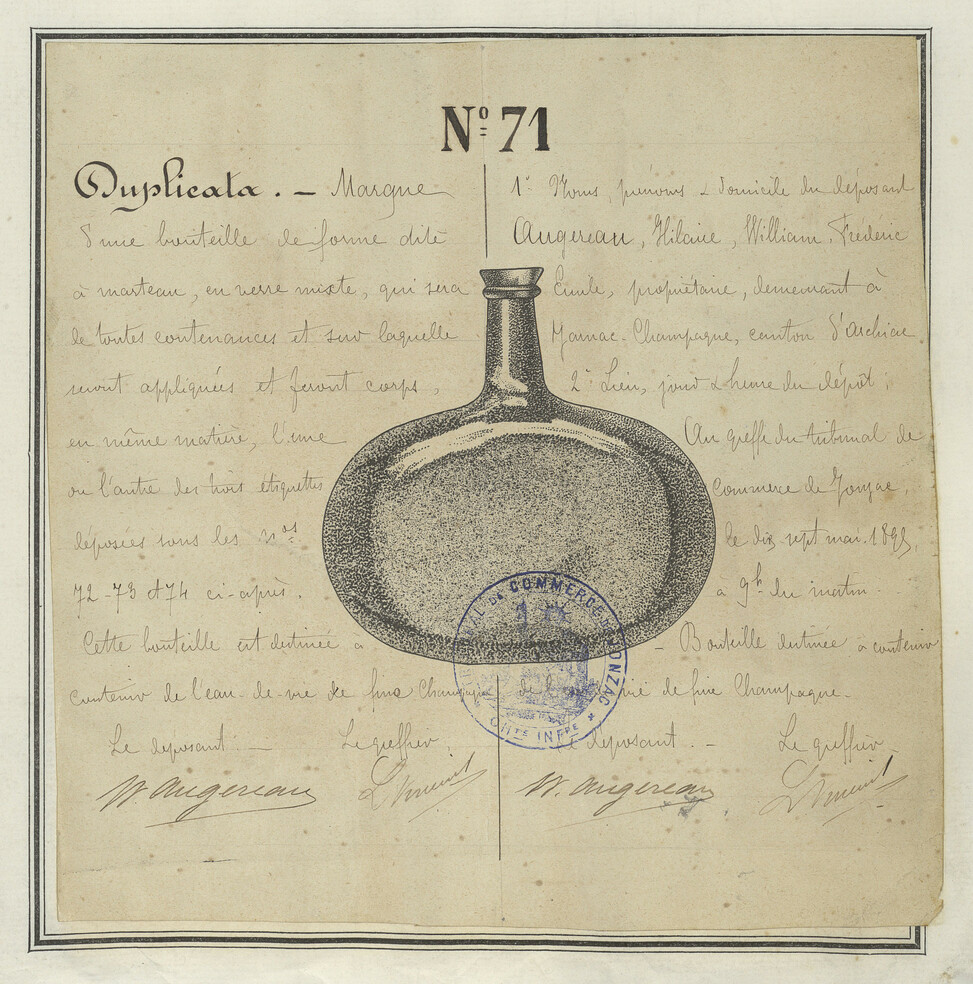 Nº 71
Duplicata. — Marque
d'une bouteille de forme dite
à marteau, en verre mixte, qui sera
de toutes contenances et sur laquelle
seront appliquées et feront corps,
en même matière, l'une
ou l'autre des trois étiquettes
déposées sous les nos
72-73 et 74 ci-après.
Cette bouteille est destinée à
contenir de l'eau-de-vie de fine Champagne
Le déposant. —
Le greffier,
W. Augereau
1º Noms, prénoms & domicile du déposant
Augereau, Hilaire, William, Frédéric
Emile, propriétaire, demeurant à
Jarnac-Champagne, canton d'Archiac
2º Lieu, jour & heure du dépôt :
Au greffe du tribunal de
Commerce de Jonzac,
le dix sept mai
à 9h du matin.
— Bouteille destinée à contenir
de l' vie de fine Champagne.
Le déposant. —
Le greffier
W. Augereau
TRIBUNAL DE COMMERCE DE JONZAC
CHTE INFRE